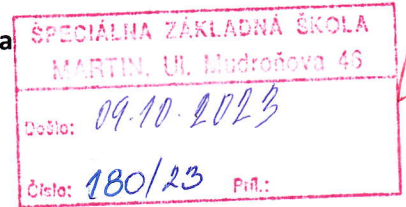 a
ŠPECIÁLNA ZÁKLADNÁ ŠKOLA
MARTIN, Ul. Mudroňova 46
Došlo: 09.10.2023
Číslo: 180/23 Príl.: